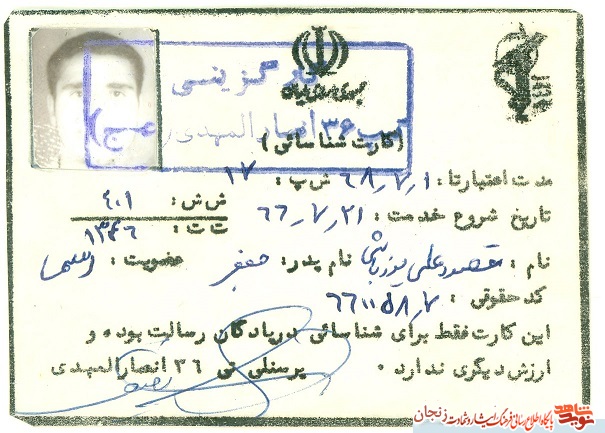 کارگزینی
تیپ ۳۶ انصارالمهدی (عج)
(کارت شناسائی)
مدت اعتبارتا: ۶۸٫۷٫۱ ش پ: ۱۷
تاریخ شروع خدمت: ۶۶٫۷٫۲۱ ش ش: ۴۰۱
ت ت: ۱۳۴۶
نام: مقصودعلی یوزباشی نام پدر: جعفر عضویت:
کد حقوقی: ۶۶۱۱۵۸٫۷
این کارت فقط برای شناسائی درپادگان رسالت بوده و
ارزش دیگری ندارد. پرسنلی تی ۳۶ انصارالمهدی
نوید شاهد پایگاه اطلاع رسانی فرهنگ ایثار و شهادت زنجان